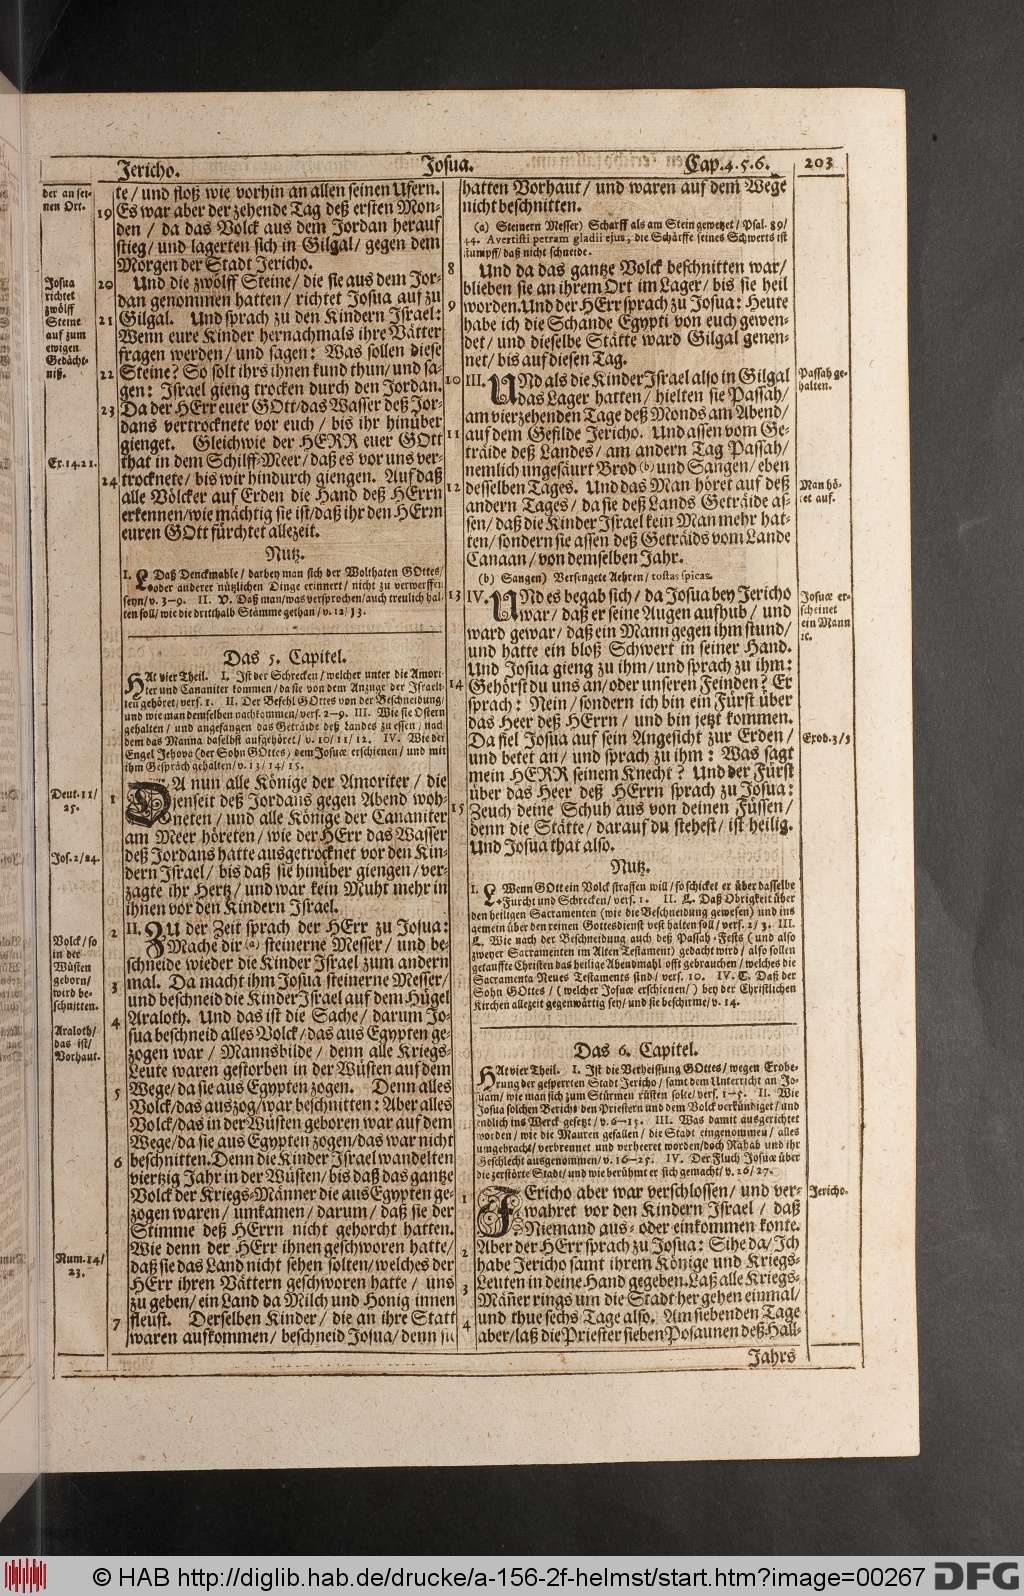 Jericho. Josua. Cap.4.5.6. 203
der an sei-
nen Ort.
te/ und floß wie vorhin an allen seinen Ufern.
19 Es war aber der zehende Tag deß ersten Mon-
den / da das Volck aus dem Jordan herauf
stieg/ und lagerten sich in Gilgal/ gegen dem
Morgen der Stadt Jericho.
Josua
richtet
zwölff
Steine
auf zum
ewigen
Gedächt-
niß.
20 Und die zwölff Steine/ die sie aus dem Jor-
dan genommen hatten/ richtet Josua auf zu
21 Gilgal. Und sprach zu den Kindern Israel:
Wenn eure Kinder hernachmals ihre Vätter
fragen werden/ und sagen: Was sollen diese
22 Steine? So solt ihrs ihnen kund thun/ und sa-
gen: Israel gieng trocken durch den Jordan.
23 Da der HErr euer GOtt/das Wasser deß Jor-
dans vertrocknete vor euch/ bis ihr hinüber
gienget. Gleichwie der HERR euer GOtt
Ex.14.21.
that in dem Schilff-Meer/ daß es vor uns ver-
24 trocknete/ bis wir hindurch giengen. Auf daß
alle Völcker auf Erden die Hand deß HErrn
erkennen/wie mächtig sie ist/daß ihr den HErrn
euren GOtt fürchtet allezeit.
Nutz.
I. L. Daß Denckmahle/ darbey man sich der Wolthaten GOttes/
oder anderer nützlichen Dinge erinnert/ nicht zu verwerffen
seyn/ v. 3-9. II. V. Daß man/was versprochen/auch treulich hal-
ten soll/ wie die dritthalb Stämme gethan/ v. 12/ 13.
Das 5. Capitel.
HAt vier Theil. I. Ist der Schrecken/ welcher unter die Amori-
ter und Cananiter kommen/da sie von dem Anzuge der Israeli-
ten gehöret/ vers. 1. II. Der Befehl GOttes von der Beschneidung/
und wie man demselben nachkommen/ vers. 2-9. III. Wie sie Ostern
gehalten/ und angefangen das Geträide deß Landes zu essen/ nach
dem das Manna daselbst aufgehöret/ v. 10/ 11/ 12. IV. Wie der
Engel Jehova (der Sohn GOttes) dem Josuæ erschienen/ und mit
ihm Gespräch gehalten/ v. 13/ 14/ 15.
Deut. 11/
25.
1 DA nun alle Könige der Amoriter / die
jenseit deß Jordans gegen Abend woh-
neten/ und alle Könige der Cananiter
am Meer höreten/ wie der HErr das Wasser
Jos. 2/ 24.
deß Jordans hatte ausgetrocknet vor den Kin-
dern Israel/ bis daß sie hinüber giengen/ ver-
zagte ihr Hertz/ und war kein Muht mehr in
ihnen vor den Kindern Israel.
2 II. ZU der Zeit sprach der HErr zu Josua:
Mache dir (a) steinerne Messer/ und be-
schneide wieder die Kinder Israel zum andern
Volck/ so
in der
Wüsten
geborn/
wird be-
schnitten.
3 mal. Da macht ihm Josua steinerne Messer/
und beschneid die Kinder Israel auf dem Hügel
4 Araloth. Und das ist die Sache/ darum Jo-
Araloth/
das ist/
Vorhaut.
sua beschneid alles Volck/das aus Egypten ge-
zogen war / Mannsbilde / denn alle Kriegs-
Leute waren gestorben in der Wüsten auf dem
5 Wege/ da sie aus Egypten zogen. Denn alles
Volck/das auszog/war beschnitten: Aber alles
Volck/das in der Wüsten geboren war auf dem
Wege/da sie aus Egypten zogen/das war nicht
6 beschnitten. Denn die Kinder Israel wandelten
viertzig Jahr in der Wüsten/ bis daß das gantze
Volck der Kriegs-Männer die aus Egypten ge-
zogen waren/ umkamen/ darum/ daß sie der
Stimme deß HErrn nicht gehorcht hatten.
Wie denn der HErr ihnen geschworen hatte/
Num. 14/
23.
daß sie das Land nicht sehen solten/welches der
HErr ihren Vättern geschworen hatte/ uns
zu geben/ ein Land da Milch und Honig innen
7 fleust. Derselben Kinder/ die an ihre Statt
waren aufkommen/ beschneid Josua/ denn sie
hatten Vorhaut/ und waren auf dem Wege
nicht beschnitten.
(a) Steinern Messer) Scharff als am Stein gewetzet/ Psal. 89/
44. Avertisti petram gladii ejus, die Schärffe seines Schwerts ist
stumpff/ daß nicht schneide.
8 Und da das gantze Volck beschnitten war/
blieben sie an ihrem Ort im Lager/ bis sie heil
9 worden. Und der HErr sprach zu Josua: Heute
habe ich die Schande Egypti von euch gewen-
det/ und dieselbe Stätte ward Gilgal genen-
net/ bis auf diesen Tag.
10 III. UNd als die Kinder Israel also in Gilgal
das Lager hatten/ hielten sie Passah/
Passah ge-
halten.
am vierzehenden Tage deß Monds am Abend/
11 auf dem Gefilde Jericho. Und assen vom Ge-
träide deß Landes/ am andern Tag Passah/
nemlich ungesäurt Brod (b) und Sangen/ eben
12 desselben Tages. Und das Man höret auf deß
Man hö-
ret auf.
andern Tages/ da sie deß Lands Geträide as-
sen/ daß die Kinder Israel kein Man mehr hat-
ten/ sondern sie assen deß Geträids vom Lande
Canaan/ von demselben Jahr.
(b) Sangen) Versengete Aehren/ tostas spicas.
13 IV. UNd es begab sich/ da Josua bey Jericho
war/ daß er seine Augen aufhub/ und
Josuæ er-
scheinet
ein Mann
ꝛc.
ward gewar/ daß ein Mann gegen ihm stund/
und hatte ein bloß Schwert in seiner Hand.
Und Josua gieng zu ihm/ und sprach zu ihm:
14 Gehörst du uns an/ oder unseren Feinden? Er
sprach: Nein/ sondern ich bin ein Fürst über
das Heer deß HErrn/ und bin jetzt kommen.
Da fiel Josua auf sein Angesicht zur Erden/
Exod. 3/ 5
und betet an/ und sprach zu ihm: Was sagt
mein HERR seinem Knecht? Und der Fürst
über das Heer deß HErrn sprach zu Josua:
15 Zeuch deine Schuh aus von deinen Füssen/
denn die Stätte/ darauf du stehest/ ist heilig.
Und Josua that also.
Nutz.
I. L. Wenn GOtt ein Volck straffen will/ so schicket er über dasselbe
Furcht und Schrecken/ vers. 1. II. L. Daß Obrigkeit über
den heiligen Sacramenten (wie die Beschneidung gewesen) und ins
gemein über den reinen Gottesdienst vest halten soll/ vers. 2/ 3. III.
L. Wie nach der Beschneidung auch deß Passah-Fests (und also
zweyer Sacramenten im Alten Testament) gedacht wird/ also sollen
getauffte Christen das heilige Abendmahl offt gebrauchen/ welches die
Sacramenta Neues Testaments sind/ vers. 10. IV. T. Daß der
Sohn GOttes/ (welcher Josuæ erschienen/) bey der Christlichen
Kirchen allezeit gegenwärtig sey/ und sie beschirme/ v. 14.
Das 6. Capitel.
HAt vier Theil. I. Ist die Verheissung GOttes/ wegen Erobe-
rung der gesperrten Stadt Jericho/ samt dem Unterricht an Jo-
suam/ wie man sich zum Stürmen rüsten solte/ vers. 1-5. II. Wie
Josua solchen Bericht den Priestern und dem Volck verkündiget/ und
endlich ins Werck gesetzt/ v. 6-15. III. Was damit ausgerichtet
worden/ wie die Mauren gefallen/ die Stadt eingenommen/ alles
umgebracht/ verbrennet und verheeret worden/doch Rahab und ihr
Geschlecht ausgenommen/ v. 16-25. IV. Der Fluch Josuæ über
die zerstörte Stadt/ und wie berühmt er sich gemacht/ v. 26/ 27.
1 JEricho aber war verschlossen/ und ver-
Jericho.
wahret vor den Kindern Israel/ daß
Niemand aus- oder einkommen konte.
2 Aber der HErr sprach zu Josua: Sihe da/ Ich
habe Jericho samt ihrem Könige und Kriegs-
3 Leuten in deine Hand gegeben. Laß alle Kriegs-
Mäñer rings um die Stadt her gehen einmal/
4 und thue sechs Tage also. Am siebenden Tage
aber/laß die Priester sieben Posaunen deß Hall-
Jahrs
© HAB http://diglib.hab.de/drucke/a-156-2f-helmst/start.htm?image=00267 DFG